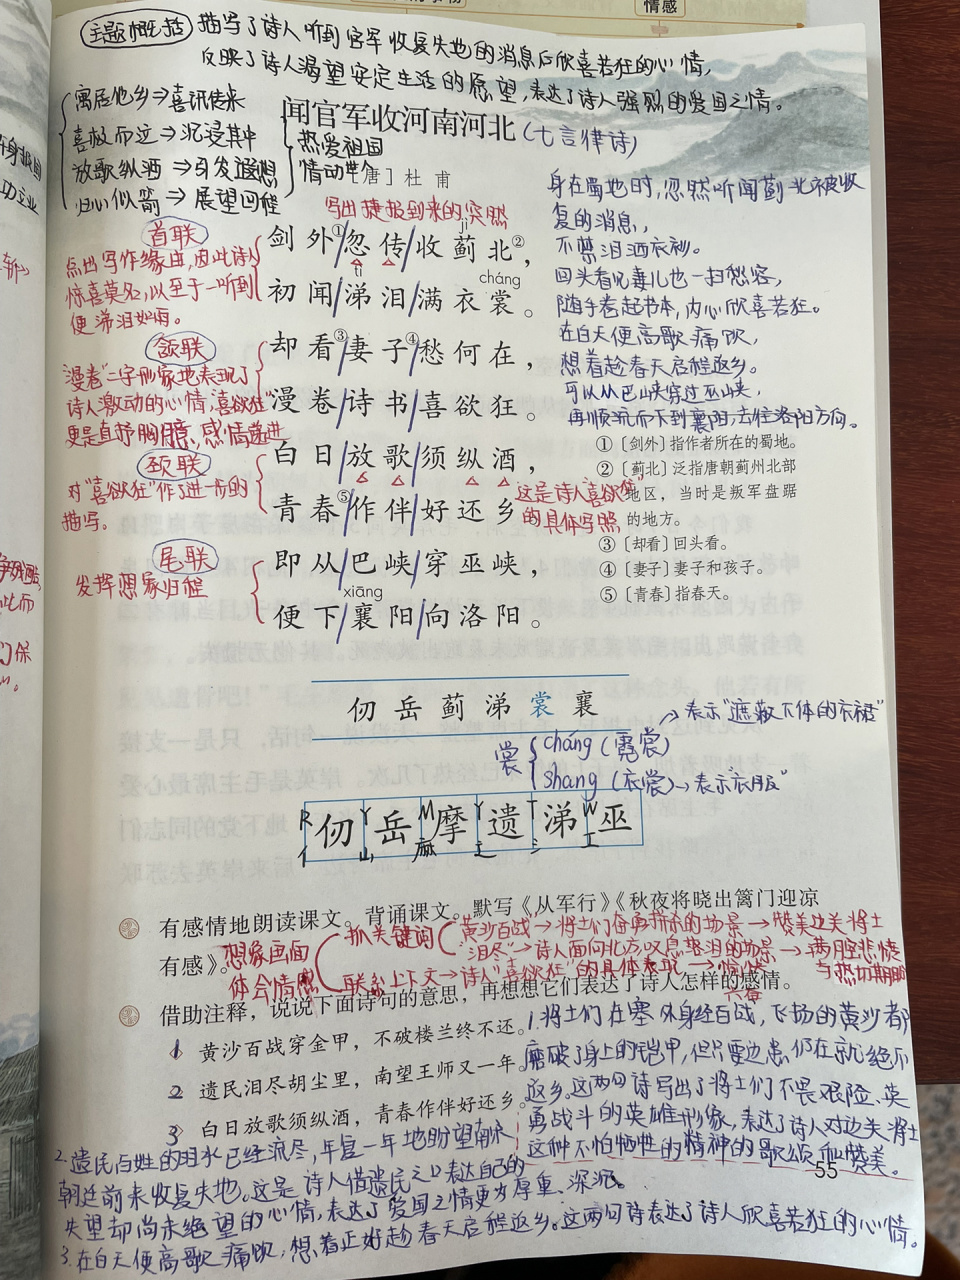 情感
主题概括 描写了诗人听到官军收复失地的消息后欣喜若狂的心情,
反映了诗人渴望安定生活的愿望,表达了诗人强烈的爱国之情。
寓居他乡⇒喜讯传来
喜极而泣⇒沉浸其中
放歌纵酒⇒引发遐想
归心似箭⇒展望回程
热爱祖国
情动世人
闻官军收河南河北(七言律诗)
[唐] 杜 甫
写出捷报到来的突然
首联
点出写作缘由,因此诗人
惊喜莫名,以至于一听到
便涕泪如雨。
jì
剑外①忽传收蓟北②,
tì
cháng
初闻涕泪满衣裳。
颔联
"漫卷"二字形象地表现了
诗人激动的心情,"喜欲狂"
更是直抒胸臆,感情递进
却看③妻子④愁何在,
漫卷诗书喜欲狂。
颈联
对"喜欲狂"作了进一步的
描写。
白日放歌须纵酒,
青春⑤作伴好还乡。
这是诗人"喜欲狂"
的具体写照
尾联
发挥想象归程
即从巴峡穿巫峡,
xiāng
便下襄阳向洛阳。
身在蜀地时,忽然听闻蓟北被收
复的消息,
不禁泪洒衣衫。
回头看见妻儿也一扫愁容,
随手卷起书本,内心欣喜若狂。
在白天便高歌痛饮,
想着趁春天启程返乡。
可以从巴峡穿过巫峡,
再顺流而下到襄阳,去往洛阳方向。
①〔剑外〕指作者所在的蜀地。
②〔蓟北〕泛指唐朝蓟州北部
地区,当时是叛军盘踞
的地方。
③〔却看〕回头看。
④〔妻子〕妻子和孩子。
⑤〔青春〕指春天。
仞 岳 蓟 涕 裳 襄
裳
cháng (霓裳)→表示"遮蔽下体的衣裙"
shang (衣裳)→表示衣服"
R Y M Y T W
仞 岳 摩 遗 涕 巫
亻 山 麻 辶 氵 工
有感情地朗读课文。背诵课文。默写《从军行》《秋夜将晓出篱门迎凉
有感》。
想象画面
体会情感
抓关键词
黄沙百战→将士们奋勇拼杀的场景→赞美边关将士
"泪尽"→诗人面向北方叹息落泪的场景→满腔悲愤
与热切期盼
联系上下文→诗人"喜欲狂"的具体表现→愉快
借助注释,说说下面诗句的意思,再想想它们表达了诗人怎样的感情。
1 黄沙百战穿金甲,不破楼兰终不还。
2 遗民泪尽胡尘里,南望王师又一年。
3 白日放歌须纵酒,青春作伴好还乡。
1.将士们在塞外身经百战,飞扬的黄沙都
磨破了身上的铠甲,但只要边患仍在就绝不
返乡。这两句诗写出了将士们不畏艰险、英
勇战斗的英雄形象,表达了诗人对边关将士
这种不怕牺牲的精神的歌颂和赞美。
55
2.遗民百姓的泪水已经流尽,年复一年地盼望南宋
朝廷前来收复失地。这是诗人借遗民之口表达自己的
失望却尚未绝望的心情,表达了爱国之情更为厚重、深沉。
3.在白天便高歌痛饮,想着正好趁春天启程返乡。这两句诗表达了诗人欣喜若狂的心情。